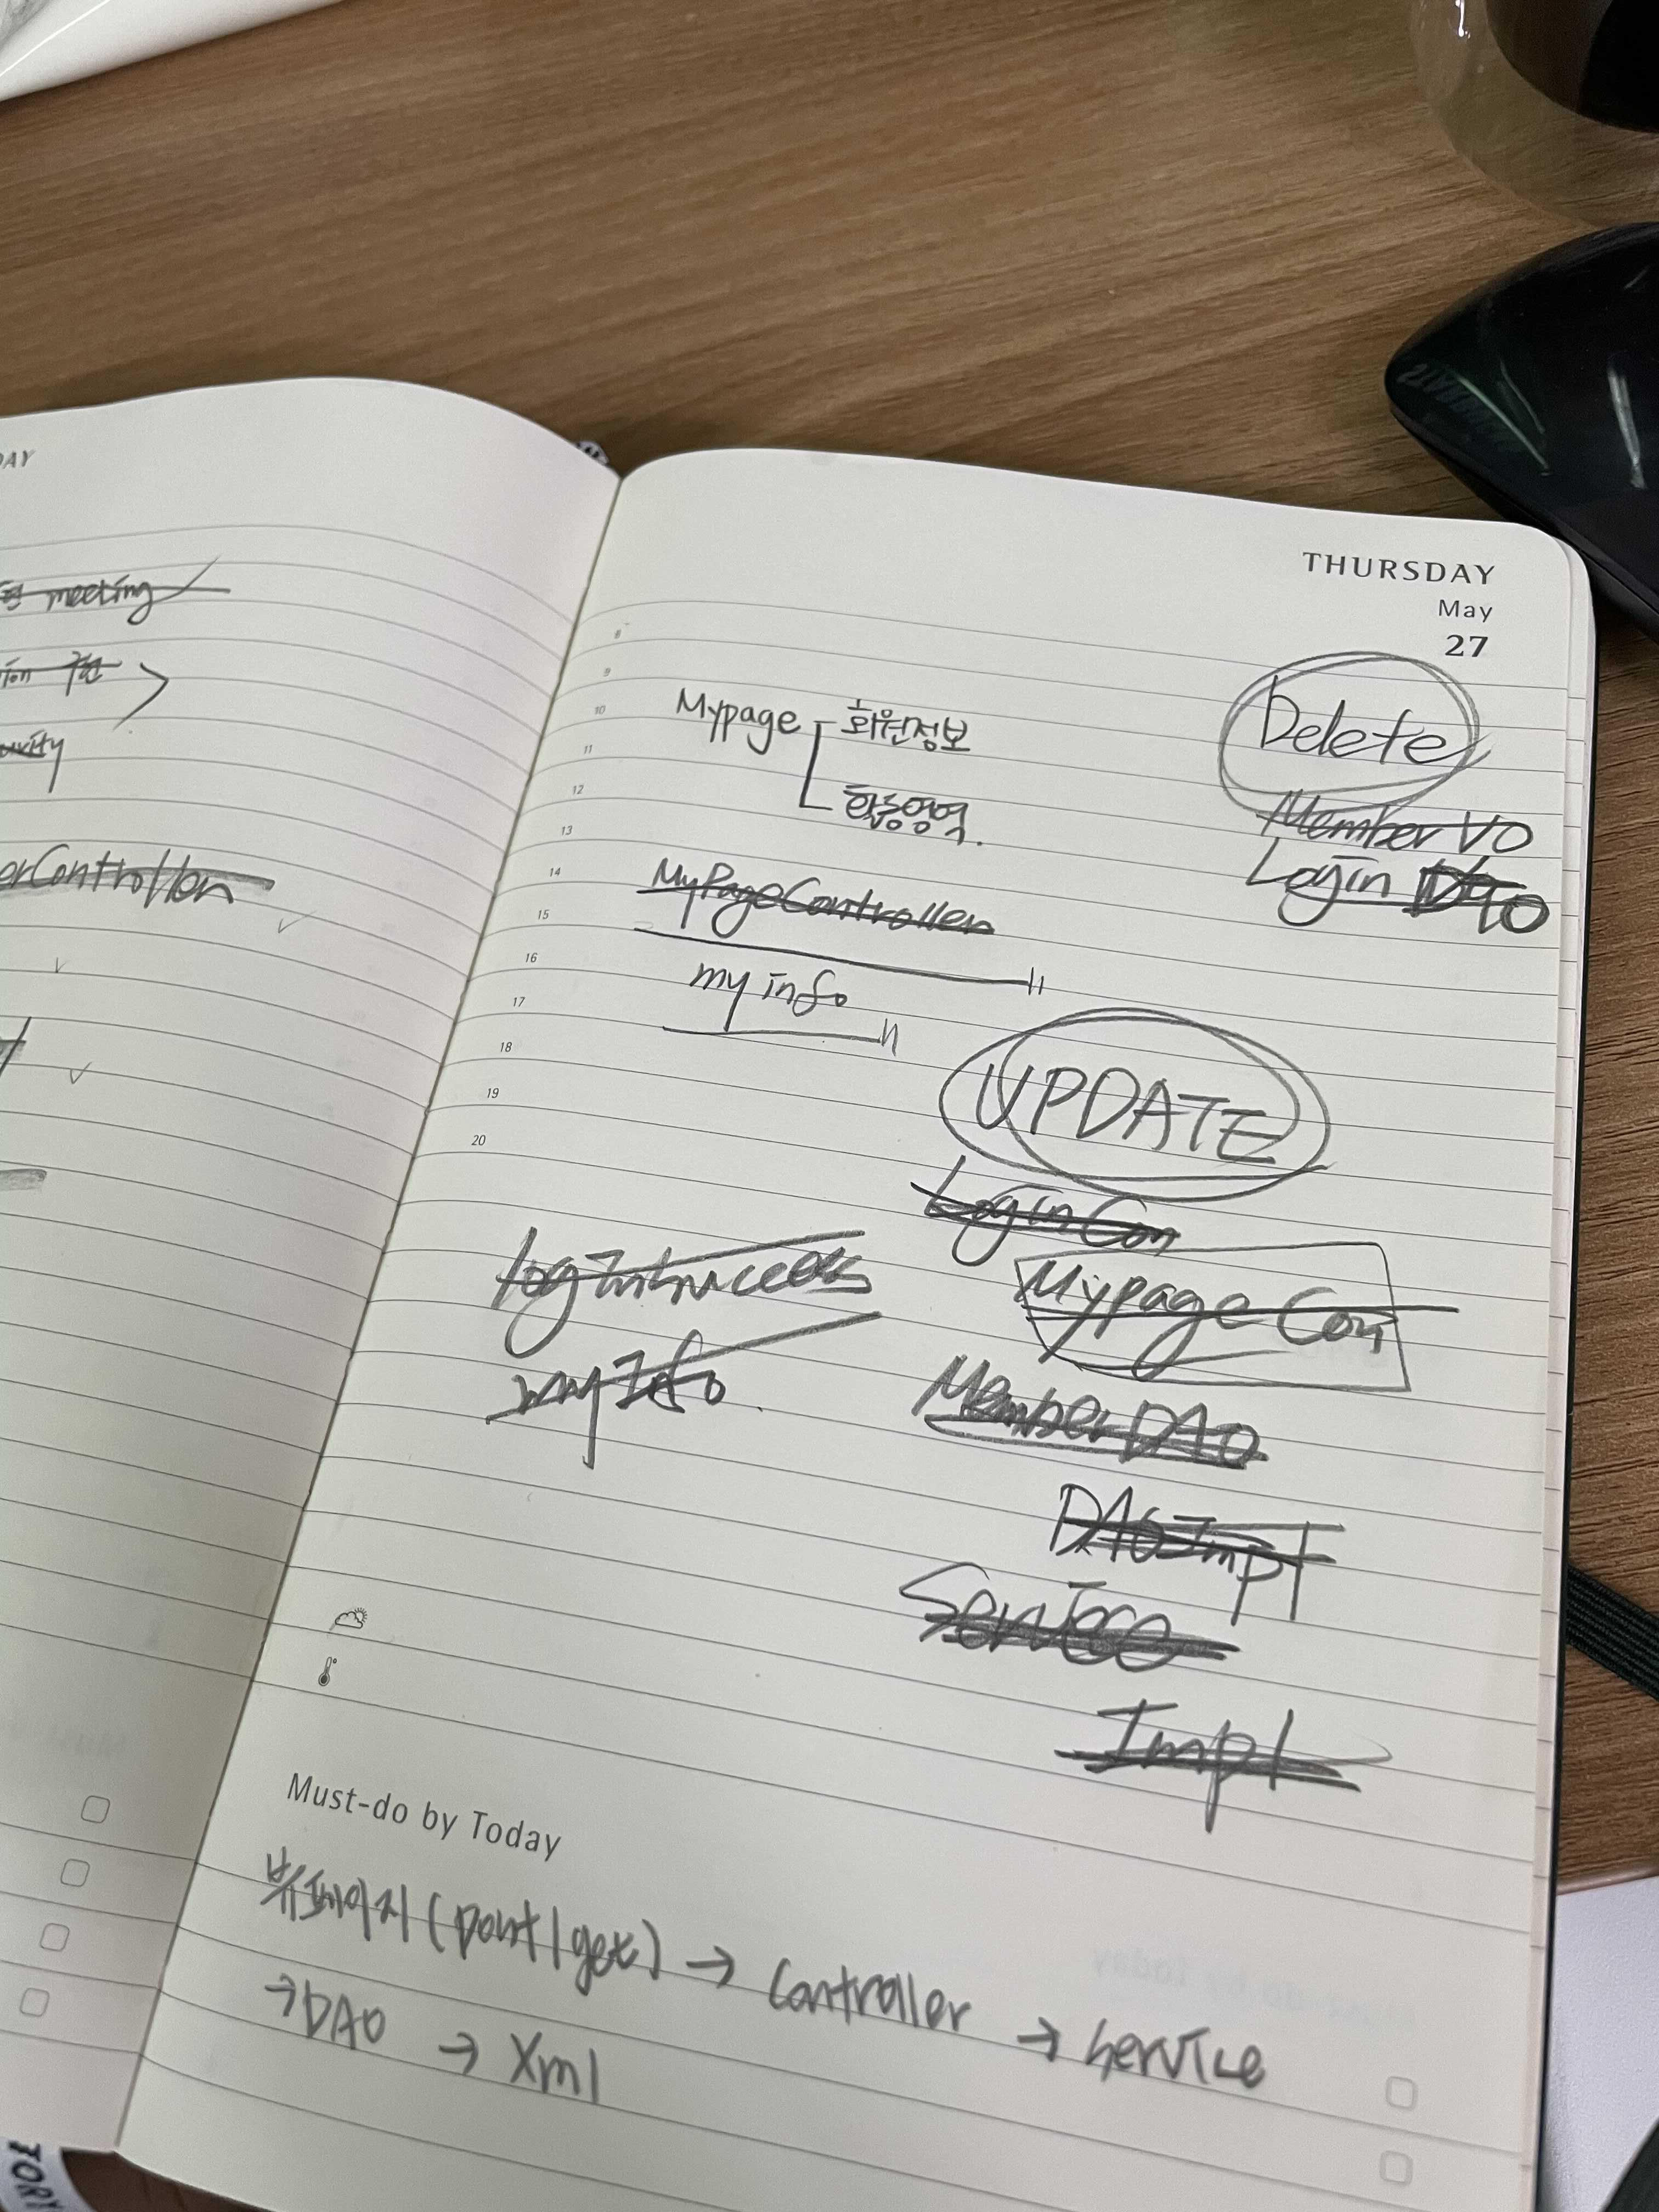 meeting
구현
erController
THURSDAY
May
27
8
9
10
11
12
13
14
15
16
17
18
19
20
Mypage
회원정보
활동영역.
Delete
Member VO
Login
MyPageController
my info
UPDATE
LoginCon
Mypage Con
MemberDAO
DAOImpl
Service
Impl
myInfo.
Must-do by Today
뷰페이지 (post/get) → Controller → service
→ DAO → Xml